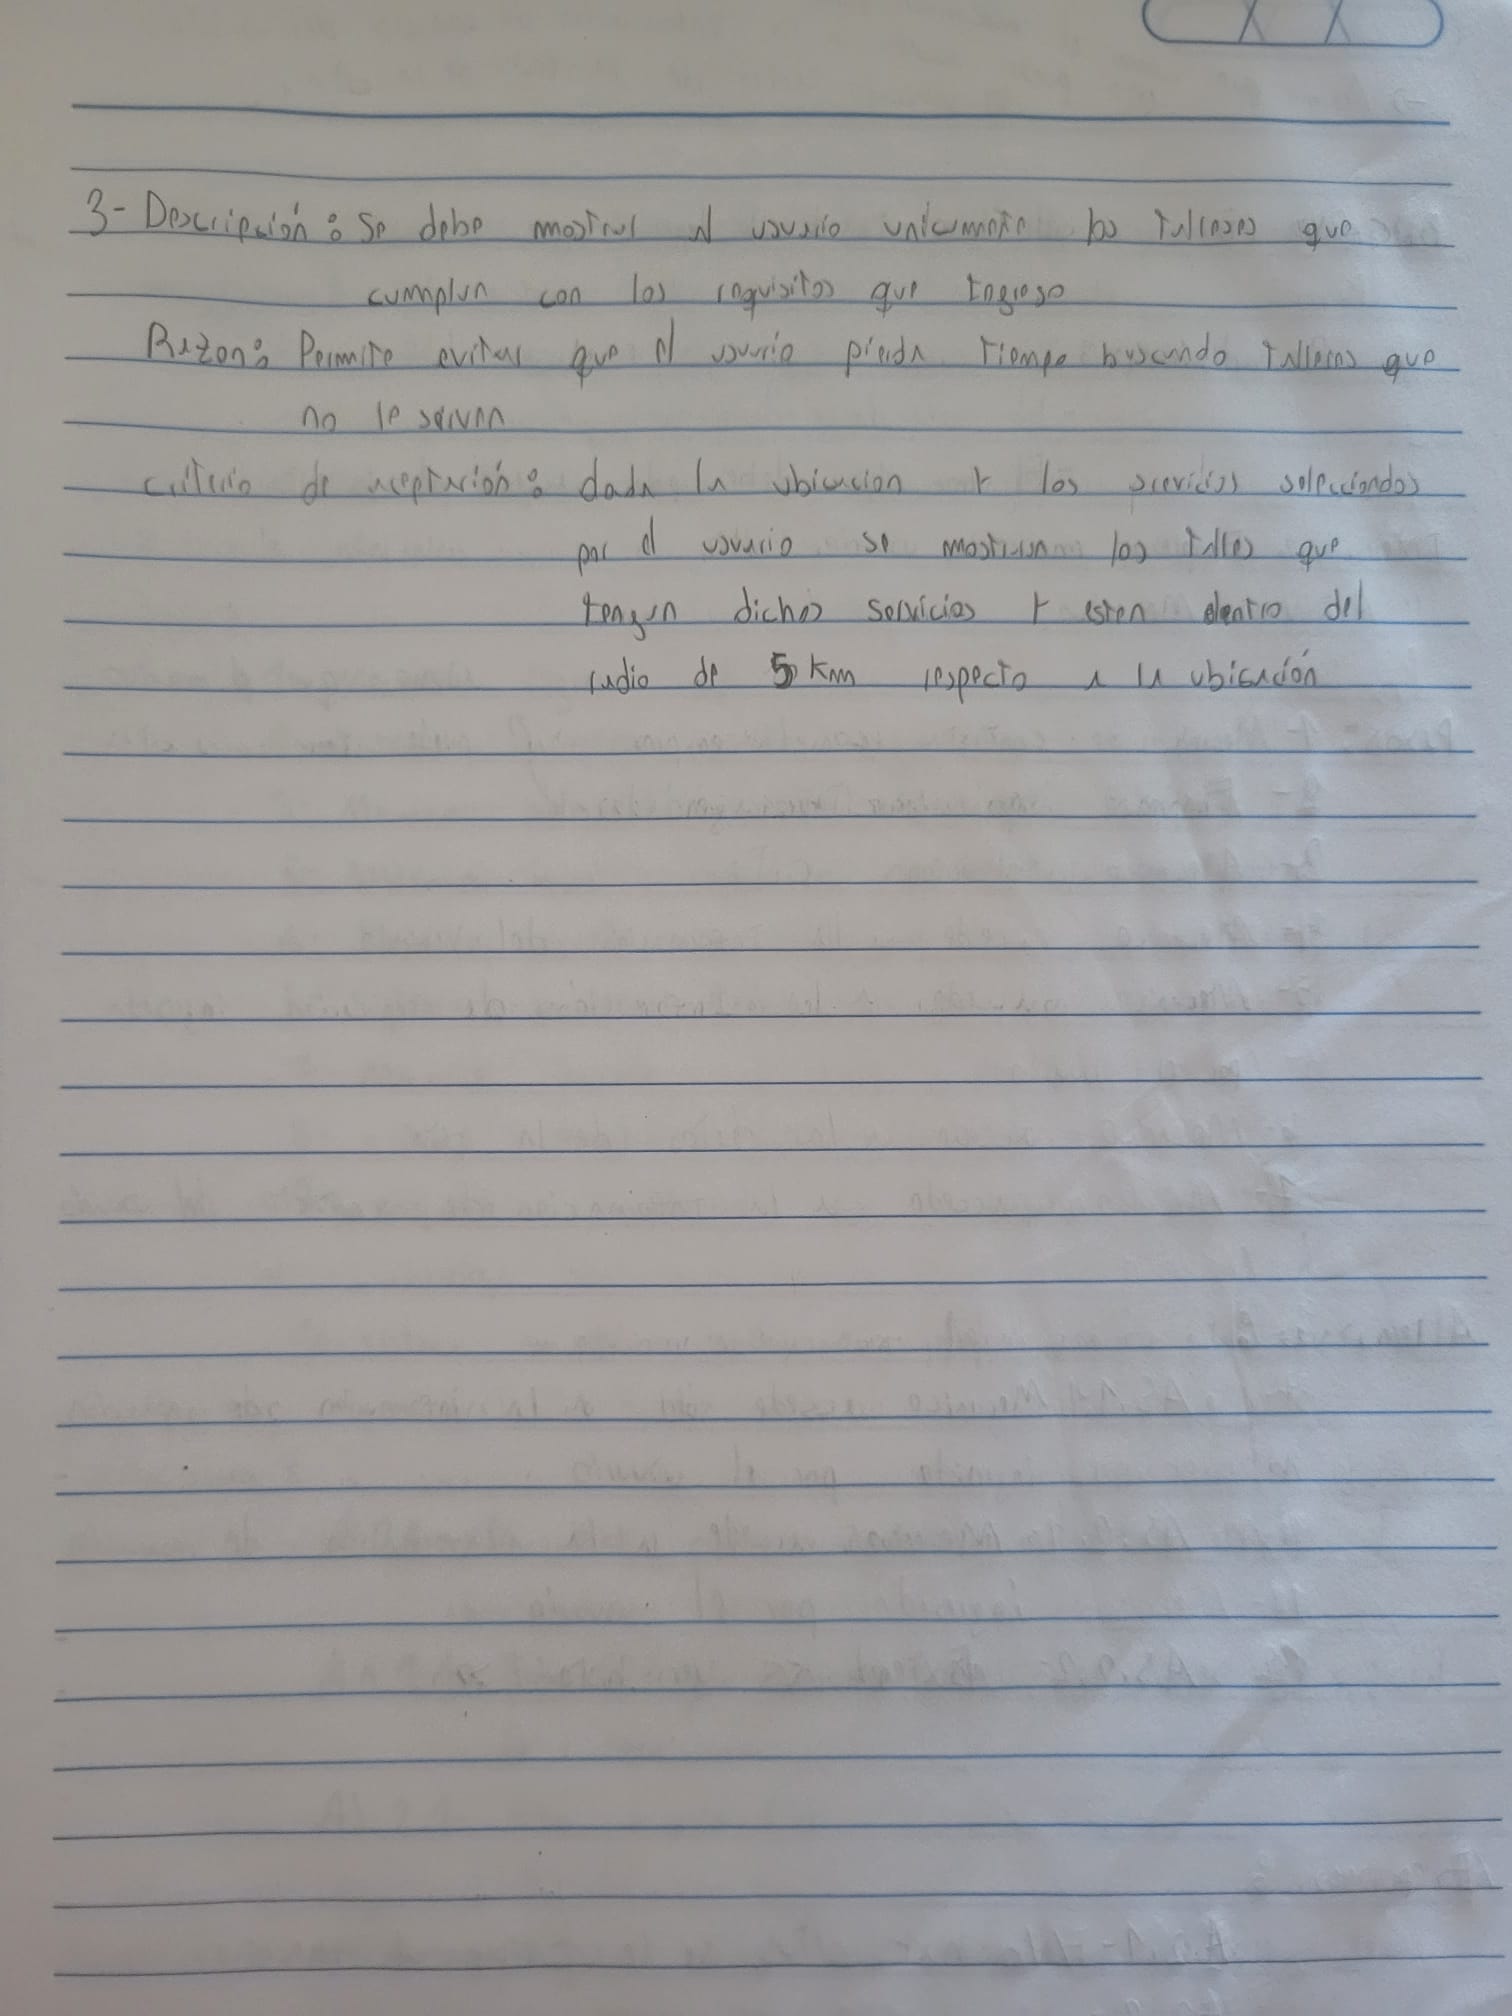 3- Descripción: Se debe mostrar al usuario unicamente los talleres que
cumplan con los requisitos que ingreso
Razon: Permite evitar que el usuario pierda tiempo buscando talleres que
no le servan
criterio de aceptación: dada la ubicacion y los servicios seleccionados
por el usuario se mostraran los talles que
tengan dichos servicios y esten dentro del
radio de 5 km respecto a la ubicación